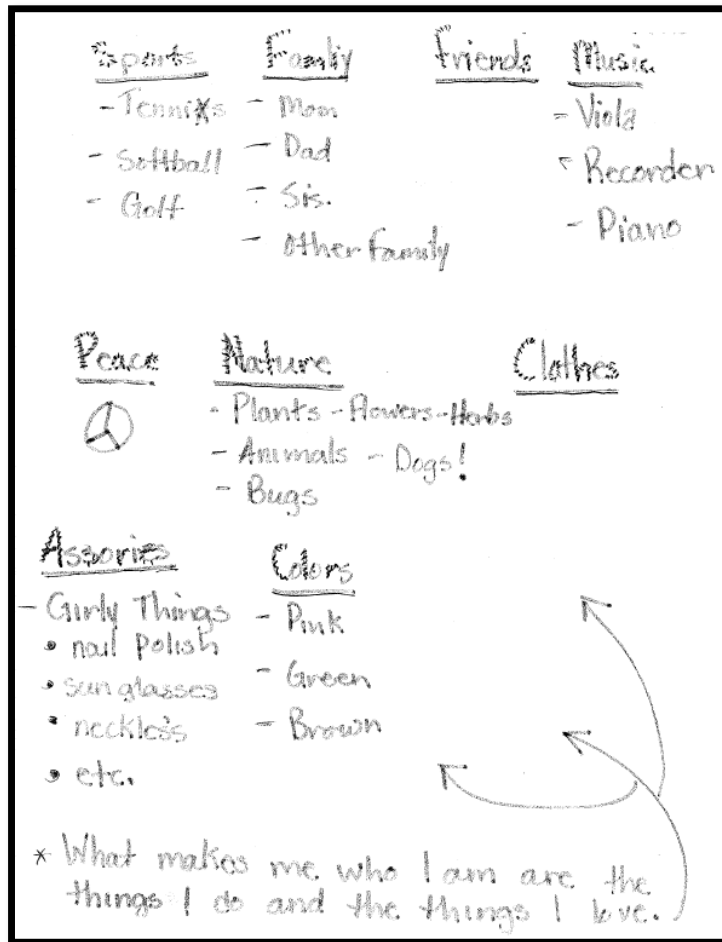 Sports
- Tennis
- Softball
- Golf
Family
- Mom
- Dad
- Sis.
- Other family
Friends
Music
- Viola
- Recorder
- Piano
Peace
Nature
- Plants - Flowers - Herbs
- Animals - Dogs!
- Bugs
Clothes
Assories
- Girly Things
• nail polish
• sunglasses
• neckless
• etc.
Colors
- Pink
- Green
- Brown
* What makes me who I am are the
things I do and the things I love.